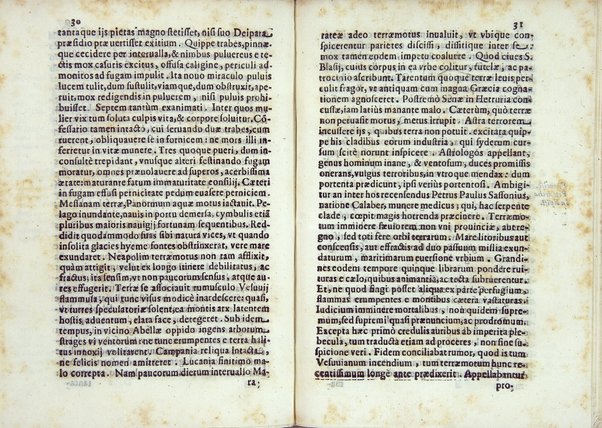 30
tantaque ijs pietas magno stetisset, nisi suo Deipara
præsidio præuertisset exitium. Quippe trabes, pinnæ-
que cecidere per interualla, & nimbus puluereus e te-
ctis mox casuris excitus, offusa caligine, periculi ad-
monitos ad fugam impulit. Ita nouo miraculo puluis
lucem tulit, dum sustulit, viamque, dum obstruxit, ape-
ruit, mox redigendis in puluerem, nisi puluis prohi-
buisset. Septem tantùm exanimati. Inter quos mu-
lier vix tum soluta culpis vita, & corpore soluitur. Cō-
fessario tamen intacto, cui seruando duæ trabes, cùm
ruerent, obliquauere se in fornicem: ne mors illi in-
ferretur in vitæ munere. Tres quoque pueri, dum in-
consultè trepidant, vnusque alteri festinanti fugam
moratur, omnes præuolauere ad superos, acerbissima
ætate: immaturo tamen fato immaturitate consilij. Cæteri
in fugam effusi pernicitate pedum euasere perniciem.
Messanam terræ, Panormum aquæ motus iactauit. Pe-
lago inundante, nauis in portu demersa, cymbulis etiā
pluribus maioris nauigij fortunam sequentibus. Red-
didit quodammodo suas sibi nauta vices, vt quando
insolita glacies hyeme fontes obstrinxerat, vere mare
exundaret. Neapolim terræmotus non tam afflixit,
quàm attigit, velut ex longo itinere debilitatus, ac
fractus; ita sensim, vt non paucorum sensus, atque au-
res effugerit. Terræ se associauit rumusculo Vesuuij
flammula, qui tunc visus modicè inardescere: quasi,
vt turres speculatoriæ solent, ea montis arx latentem
hostis, aduentum, elata face, detergere. Sub idem
tempus, in vicino Abellæ oppido angens arborum
strages vi ventorum ne tunc erumpentes e terra hali-
tus innoxij velitarent. Campania reliqua intacta,
ne felicis nomen amitteret. Lucania finitimo ma-
lo correpta. Nam paucorum dierum interuallo Ma-
ra-
31
rateæ adeo terræmotus inualuit, vt vbique con-
spicerentur parietes discissi, dissitique inter se
mox tamen eodem impetu coaluere. Quod ciues S.
Blasij, cuius corpus in ea vrbe colitur, tutelæ, ac pa-
trocinio ascribunt. Tarentum quoque terræ leuis per-
culit fragor, vt antiquam cum magna Græcia cogna-
tionem agnosceret. Postremò Senæ in Hetruria con-
custæ, iam latiùs manante malo. Cæterùm, quò terræ
non peruasit motus, metus irrupit. Astra terrorem
incussere ijs, quibus terra non potuit. excitata quip-
pe his cladibus eorum industria, qui syderum cur-
sum scitè norunt inspicere. Astrologos appellant,
genus hominum inane, & ventosum, duces promissis
onerans, vulgus terroribus, in vtroque mendax: dum
portenta prædicunt, ipsi veriùs portentosi. Ambigi-
tur an inter hos recensendus Petrus Paulus Sassonius,
natione Calaber, munere medicus; qui, hac serpente
clade, cœpit magis horrenda præcinere. Terræmo-
tum immidere sæuiorem non vni prouinciæ, abrute-
gno, sed toti fere orbi terrarum. Mare litoribus aut
conscensis, aut effractis ad dito passum millia exun-
daturum, maritimarum euersione vrbium. Grandi-
nes eodem tempore quinque librarum pondere rui-
turas e cælo, quibus animantia, ac tecta subruerentur.
Et, ne quod fingi posset aliqua ex parte perfugium,
flammas erumpentes e montibus cætera vastaturas.
Iudicium imminere mortalibus, non quidem supre-
mum, sed suptemi quasi prænuncium, ac prodromum.
Excepta hæc primò credulis auribus ab imperita ple-
becula, tum traducta etiam ad proceres, non sine su-
spicione veri. Fidem conciliabat rumor, quod is tum
Vesuuianum incendium, tum terræmotum hunc re-
centissimum longè ante prædixerit. Appellabantur
pro-